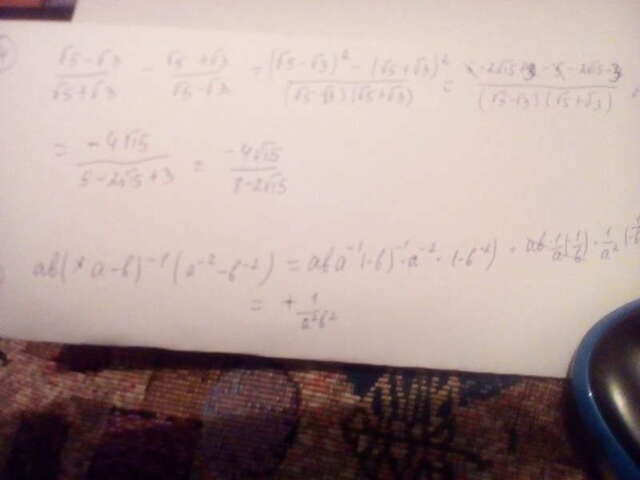 (√5-√3)/(√5+√3) - (√5+√3)/(√5-√3) = ((√5-√3)² - (√5+√3)²)/((√5-√3)(√5+√3)) = (5-2√15+3-5-2√15-3)/((√5-√3)(√5+√3)) =
= (-4√15)/(5-2√15+3) = (-4√15)/(8-2√15)
ab(a-b)⁻¹(a⁻²-b⁻²) = aba⁻¹(-b)⁻¹·a⁻²·(-b⁻²) = ab·1/a·(-1/b)·1/a²
= +1/(a²b²)